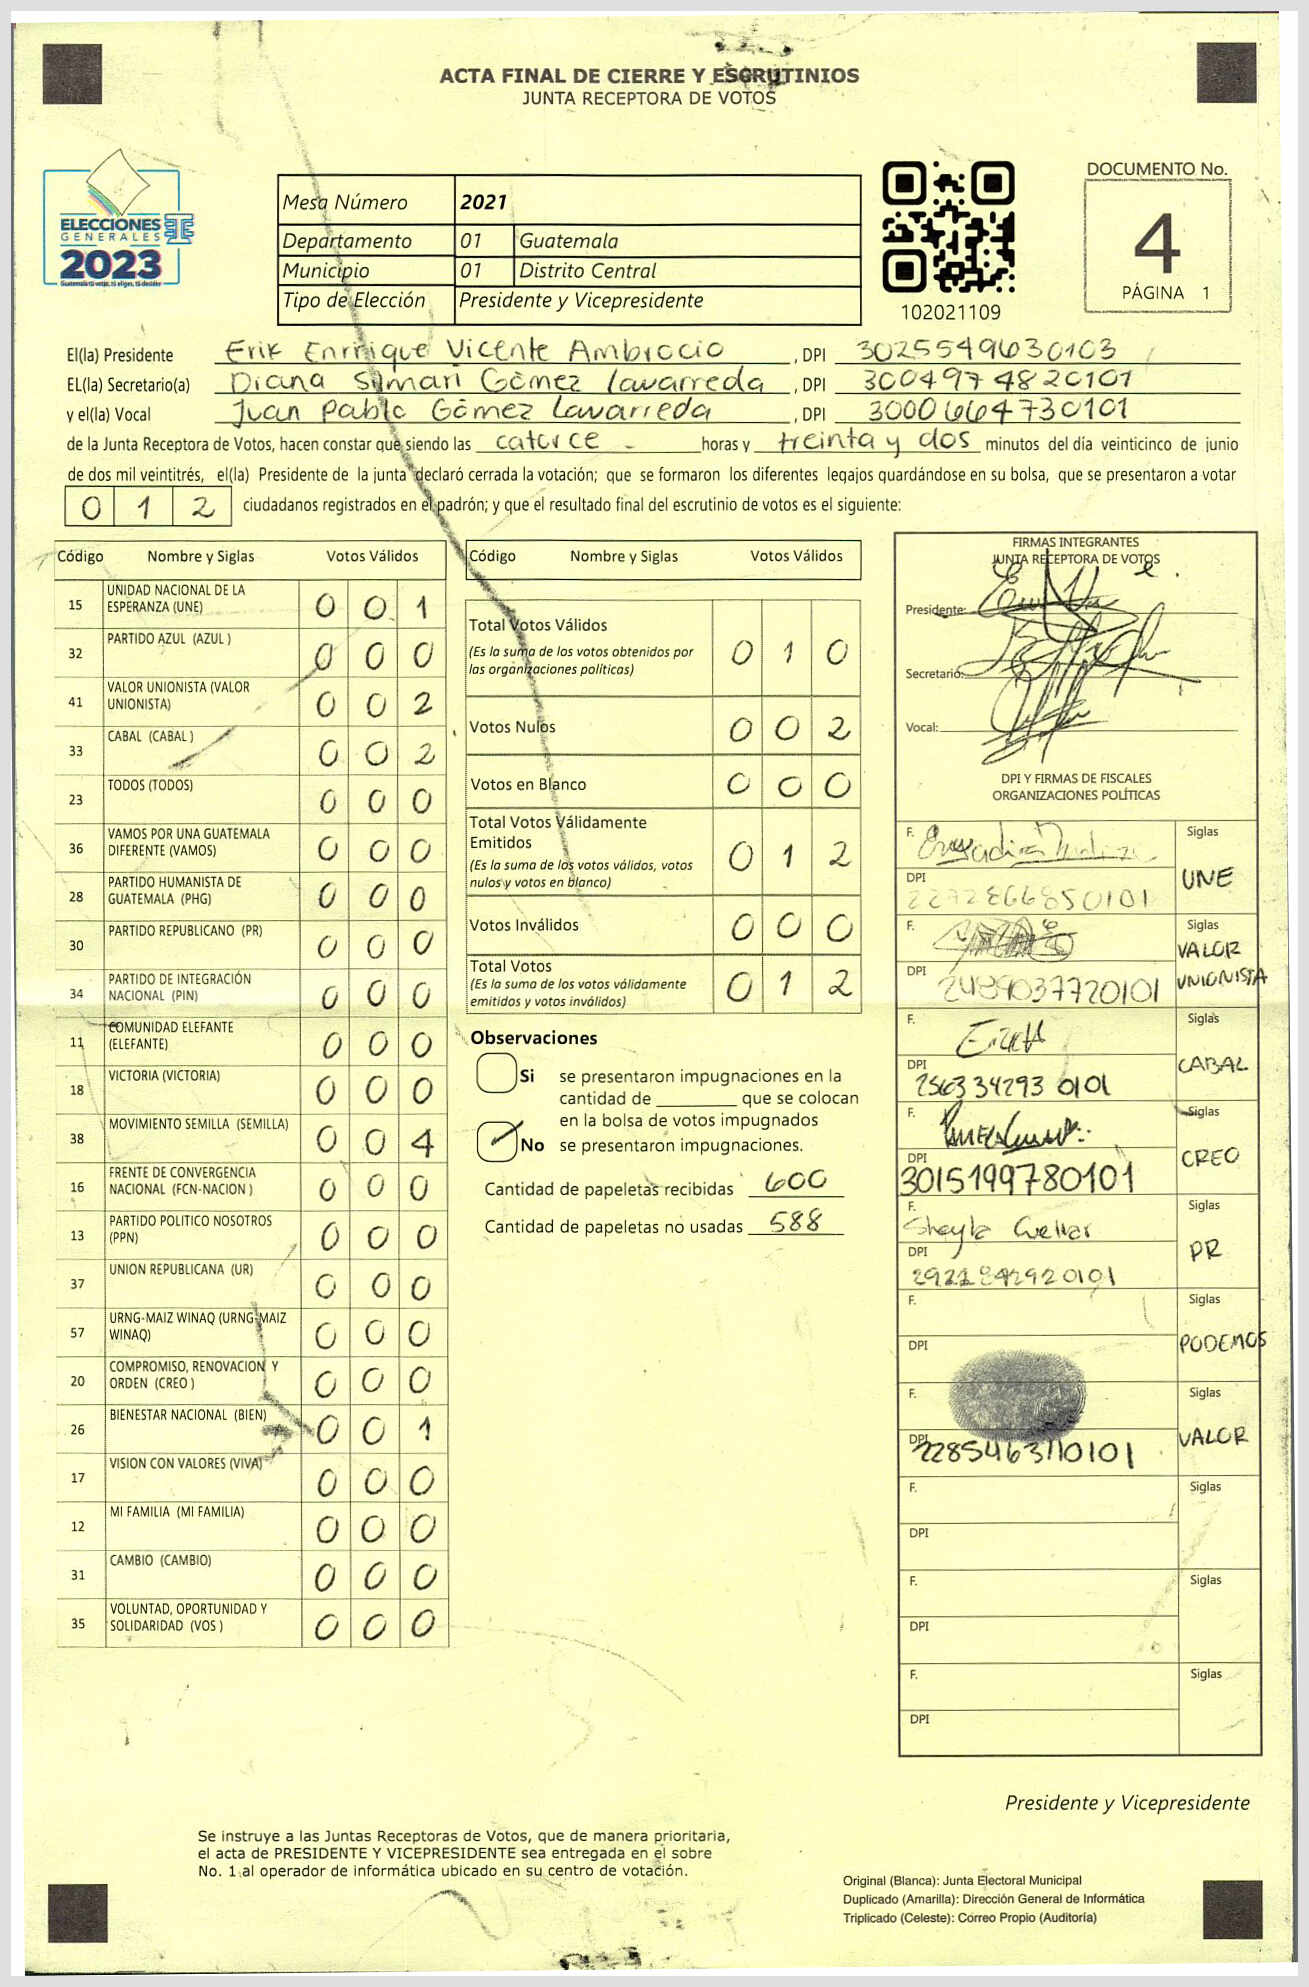 ACTA FINAL DE CIERRE Y ESCRUTINIOS
JUNTA RECEPTORA DE VOTOS
ELECCIONES
GENERALES
2023
Mesa Número 2021
Departamento 01 Guatemala
Municipio 01 Distrito Central
Tipo de Elección Presidente y Vicepresidente
102021109
DOCUMENTO No.
4
PÁGINA 1
El(la) Presidente Erik Enrrique Vicente Ambrocio, DPI 3025549630103
EL(la) Secretario(a) Diana Silmari Gómez Lavarreda, DPI 3004974820101
y el(la) Vocal Juan Pablo Gómez Lavarreda, DPI 3000664730101
de la Junta Receptora de Votos, hacen constar que siendo las catorce - horas y treinta y dos minutos del día veinticinco de junio
de dos mil veintitrés, el(la) Presidente de la junta declaró cerrada la votación; que se formaron los diferentes legajos quardándose en su bolsa, que se presentaron a votar
0 1 2 ciudadanos registrados en el padrón; y que el resultado final del escrutinio de votos es el siguiente:
Código Nombre y Siglas Votos Válidos
15 UNIDAD NACIONAL DE LA ESPERANZA (UNE) 0 0 1
32 PARTIDO AZUL (AZUL ) 0 0 0
41 VALOR UNIONISTA (VALOR UNIONISTA) 0 0 2
33 CABAL (CABAL ) 0 0 2
23 TODOS (TODOS) 0 0 0
36 VAMOS POR UNA GUATEMALA DIFERENTE (VAMOS) 0 0 0
28 PARTIDO HUMANISTA DE GUATEMALA (PHG) 0 0 0
30 PARTIDO REPUBLICANO (PR) 0 0 0
34 PARTIDO DE INTEGRACIÓN NACIONAL (PIN) 0 0 0
11 COMUNIDAD ELEFANTE (ELEFANTE) 0 0 0
18 VICTORIA (VICTORIA) 0 0 0
38 MOVIMIENTO SEMILLA (SEMILLA) 0 0 4
16 FRENTE DE CONVERGENCIA NACIONAL (FCN-NACION ) 0 0 0
13 PARTIDO POLITICO NOSOTROS (PPN) 0 0 0
37 UNION REPUBLICANA (UR) 0 0 0
57 URNG-MAIZ WINAQ (URNG-MAIZ WINAQ) 0 0 0
20 COMPROMISO, RENOVACION Y ORDEN (CREO ) 0 0 0
26 BIENESTAR NACIONAL (BIEN) 0 0 1
17 VISION CON VALORES (VIVA) 0 0 0
12 MI FAMILIA (MI FAMILIA) 0 0 0
31 CAMBIO (CAMBIO) 0 0 0
35 VOLUNTAD, OPORTUNIDAD Y SOLIDARIDAD (VOS ) 0 0 0
Código Nombre y Siglas Votos Válidos
Total Votos Válidos 0 1 0
(Es la suma de los votos obtenidos por
las organizaciones políticas)
Votos Nulos 0 0 2
Votos en Blanco 0 0 0
Total Votos Válidamente
Emitidos 0 1 2
(Es la suma de los votos válidos, votos
nulos y votos en blanco)
Votos Inválidos 0 0 0
Total Votos 0 1 2
(Es la suma de los votos válidamente
emitidos y votos inválidos)
Observaciones
Si se presentaron impugnaciones en la
cantidad de que se colocan
en la bolsa de votos impugnados
No se presentaron impugnaciones.
Cantidad de papeletas recibidas 600
Cantidad de papeletas no usadas 588
FIRMAS INTEGRANTES
JUNTA RECEPTORA DE VOTOS
Presidente:
Secretario:
Vocal:
DPI Y FIRMAS DE FISCALES
ORGANIZACIONES POLÍTICAS
F. Siglas
DPI UNE
F. Siglas
DPI 2489037720101 VALOR UNIONISTA
F. Siglas
DPI 2563342930101 CABAL
F. Siglas
DPI 3015199780101 CREO
F. Sheyla Cuellar Siglas
DPI PR
F. Siglas
DPI PODEMOS
F. Siglas
DPI VALOR
F. Siglas
DPI
F. Siglas
DPI
F. Siglas
DPI
Presidente y Vicepresidente
Se instruye a las Juntas Receptoras de Votos, que de manera prioritaria,
el acta de PRESIDENTE Y VICEPRESIDENTE sea entregada en el sobre
No. 1 al operador de informática ubicado en su centro de votación.
Original (Blanca): Junta Electoral Municipal
Duplicado (Amarilla): Dirección General de Informática
Triplicado (Celeste): Correo Propio (Auditoría)